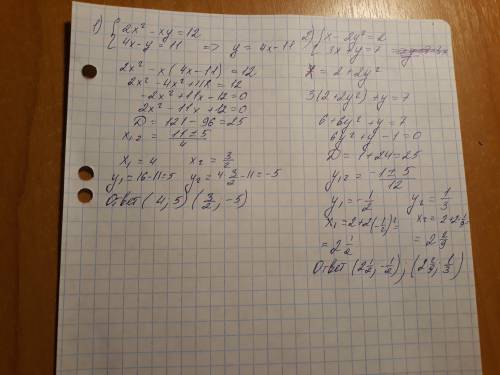 1) { 2x² - xy = 12
4x - y = 11 => y = 4x - 11
2x² - x(4x - 11) = 12
2x² - 4x² + 11x = 12
-2x² + 11x - 12 = 0
2x² - 11x + 12 = 0
D = 121 - 96 = 25
x₁,₂ = (11 ± 5)/4
x₁ = 4 x₂ = 3/2
y₁ = 16 - 11 = 5 y₂ = 4·3/2 - 11 = -5
Ответ (4, 5) (3/2, -5)
2) { x - 2y² = 2
3x + y = 7
x = 2 + 2y²
3(2 + 2y²) + y = 7
6 + 6y² + y = 7
6y² + y - 1 = 0
D = 1 + 24 = 25
y₁,₂ = (-1 ± 5)/12
y₁ = -1/2 y₂ = 1/3
x₁ = 2 + 2(-1/2)² = x₂ = 2 + 2·1/9
= 2 1/2 = 2 2/9
Ответ (2 1/2, -1/2); (2 2/9; 1/3)